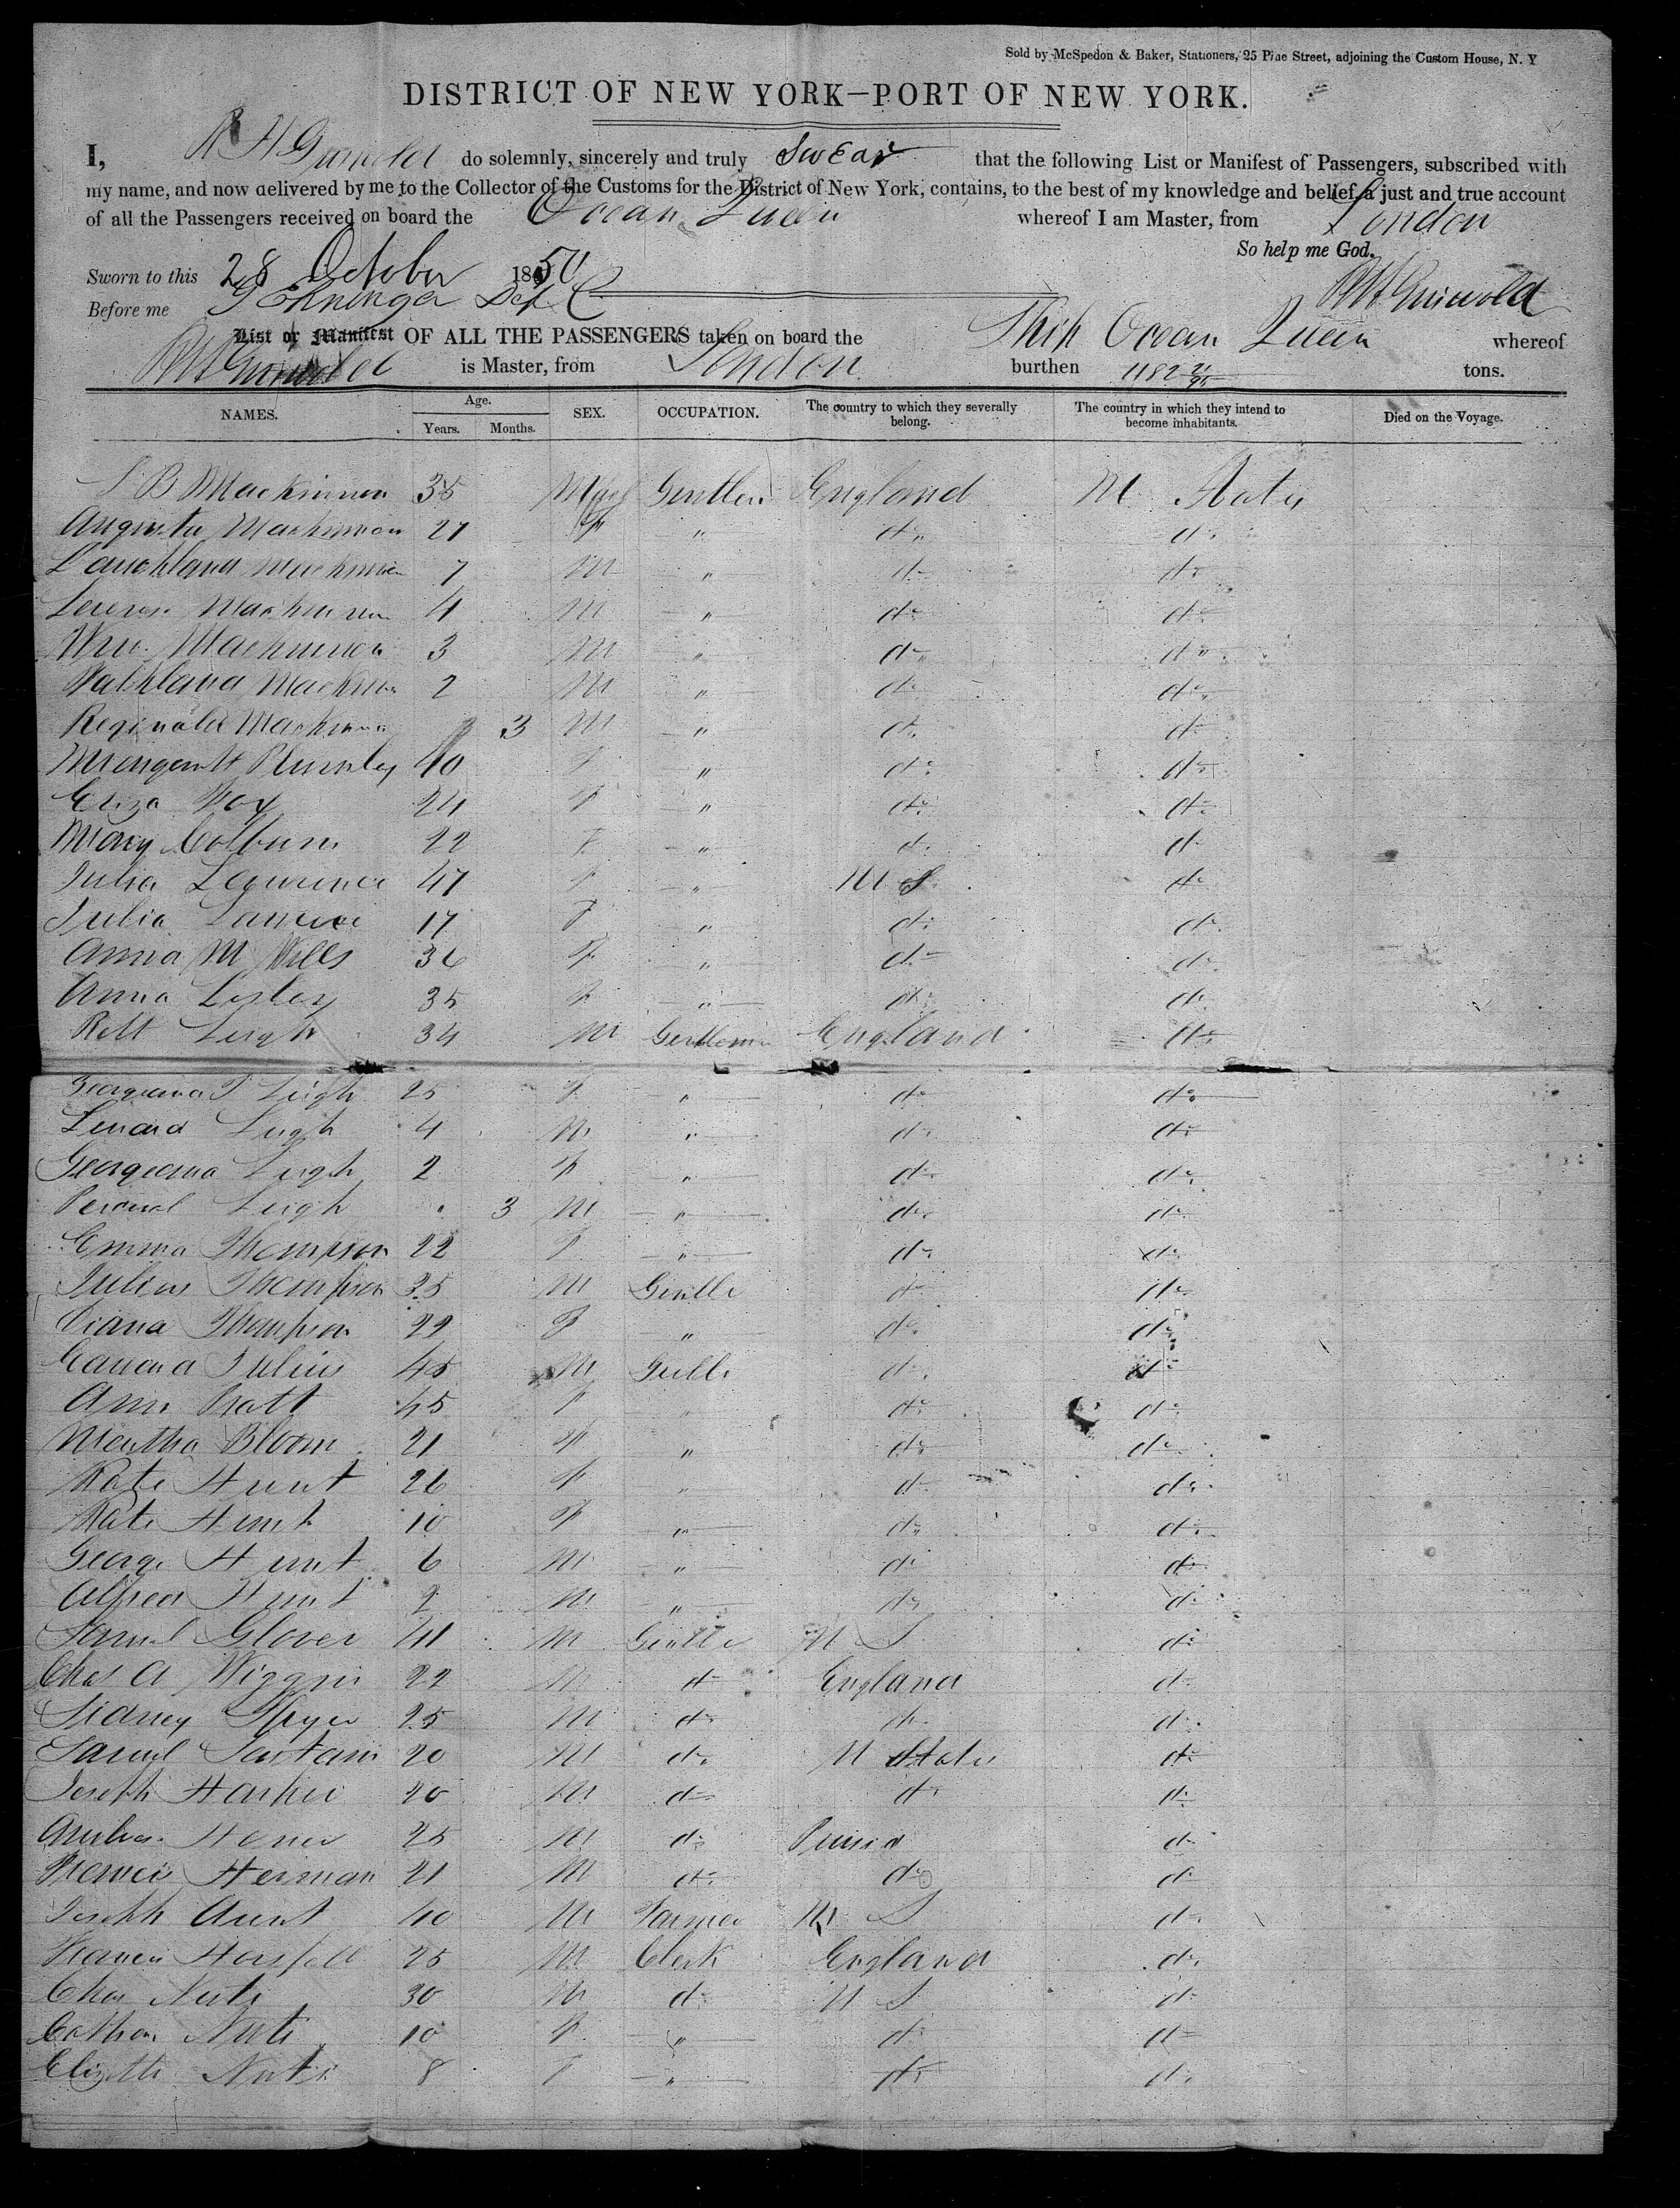 Sold by McSpedon & Baker, Stationers, 25 Pine Street, adjoining the Custom House, N. Y
DISTRICT OF NEW YORK—PORT OF NEW YORK.
I, R H Griswold do solemnly, sincerely and truly Swear that the following List or Manifest of Passengers, subscribed with
my name, and now delivered by me to the Collector of the Customs for the District of New York, contains, to the best of my knowledge and belief, a just and true account
of all the Passengers received on board the Ocean Queen whereof I am Master, from London
So help me God.
Sworn to this 28 October 1850
Before me Dep C R H Griswold
List or Manifest OF ALL THE PASSENGERS taken on board the Ship Ocean Queen whereof
R H Griswold is Master, from London burthen 1182 21/95 tons.
NAMES. Age. Years. Months. SEX. OCCUPATION. The country to which they severally belong. The country in which they intend to become inhabitants. Died on the Voyage.
L B Mackinnon 35 Male Gentlen England U States
Augusta Mackinnon 27 F " do do
Lauchland Mackinnon 7 M " do do
Mackinnon 4 M " do do
Wm Mackinnon 3 M " do do
Mackinnon 2 M " do do
Reginald Mackinnon 3 M " do do
Margaret Plumley 40 F " do do
Eliza Fox 24 F " do do
Mary Colburn 22 F " do do
Julia Lawrence 47 F " U S do
Julia Lawrence 17 F " do do
Anna M Wills 36 F " do do
Anna Lesley 35 F " do do
Robt Leigh 34 M Gentleman England do
Georgiana P Leigh 25 F " do do
Lenard Leigh 4 M " do do
Georgeana Leigh 2 F " do do
Percival Leigh " 3 M " do do
Emma Thompson 22 F " do do
Julius Thompson 35 M Gentle do do
Diana Thompson 22 F " do do
Edward Julius 45 M Gentle do do
Ann Pratt 45 F " do do
Martha Bloom 21 F " do do
Kate Hunt 26 F " do do
Kate Hunt 10 F " do do
George Hunt 6 M " do do
Alfred Hunt 2 M " do do
Samuel Glover 41 M Gentle U S do
Chas A Wiggins 22 M do England do
Sidney 25 M do do do
Samuel Sartain 20 M do U States do
Joseph Harker 20 M do do do
25 M do Prussia do
Herman 21 M do do do
Joseph Aunt 40 M Farmer U S do
Horsfall 25 M Clerk England do
Chas Nuti 30 M do U S do
Nuti 10 F " do do
Elizth Nuti 8 F " do do